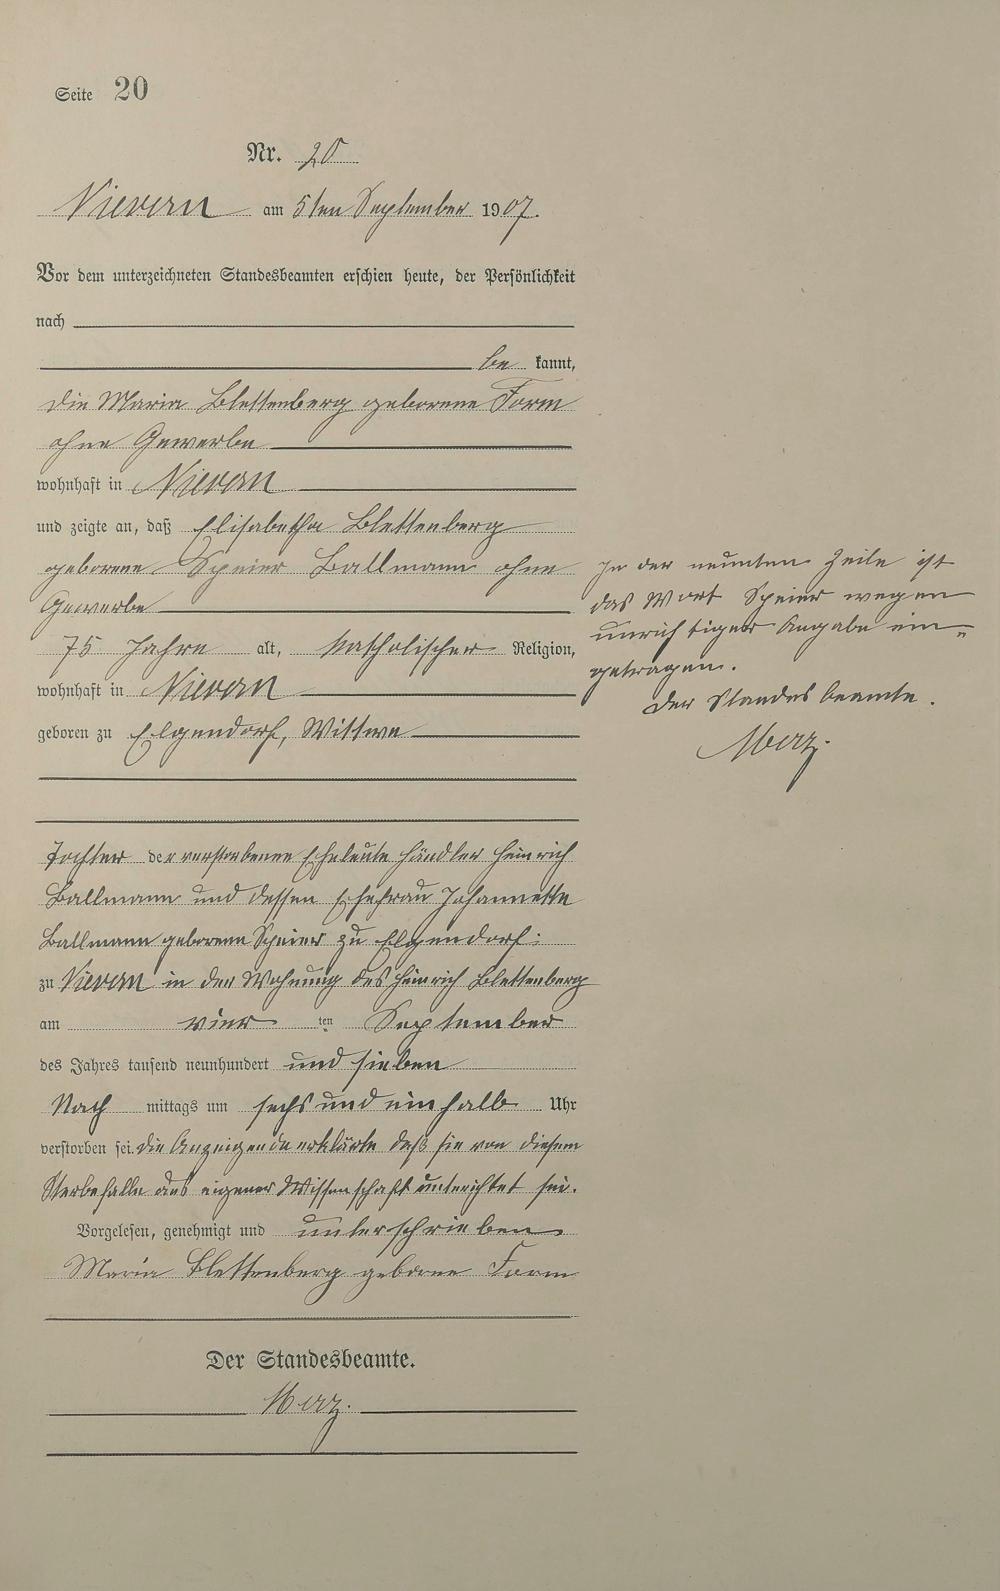 Seite 20
Nr. 20
Nievern am 5ten September 1907.
Vor dem unterzeichneten Standesbeamten erschien heute, der Persönlichkeit
nach
be kannt,
die Maria Blettenberg geborene Form
ohne Gewerbe
wohnhaft in Nievern
und zeigte an, daß Elisabetha Blettenberg
geborene Speier Ballmann ohne
Gewerbe
75 Jahre alt, katholischer Religion,
wohnhaft in Nievern
geboren zu Elgendorf, Wittwe
Tochter der verstorbenen Eheleute Händler Heinrich
Ballmann und dessen Ehefrau Johannette
Ballmann geborene Speier zu Elgendorf;
zu Nievern in der Wohnung des Heinrich Blettenberg
am vier ten September
des Jahres tausend neunhundert und sieben
Nach mittags um sechs und ein halb Uhr
verstorben sei. Die Anzeigende erklärte daß sie von diesem
Sterbefalle aus eigener Wissenschaft unterichtet sei.
Vorgelesen, genehmigt und unterschrieben
Maria Blettenberg geborne Form
Der Standesbeamte.
Merz.
In der neunten Zeile ist
das Wort Speier wegen
unrichtiger Angabe ein=
getragen.
Der Standesbeamte.
Merz.